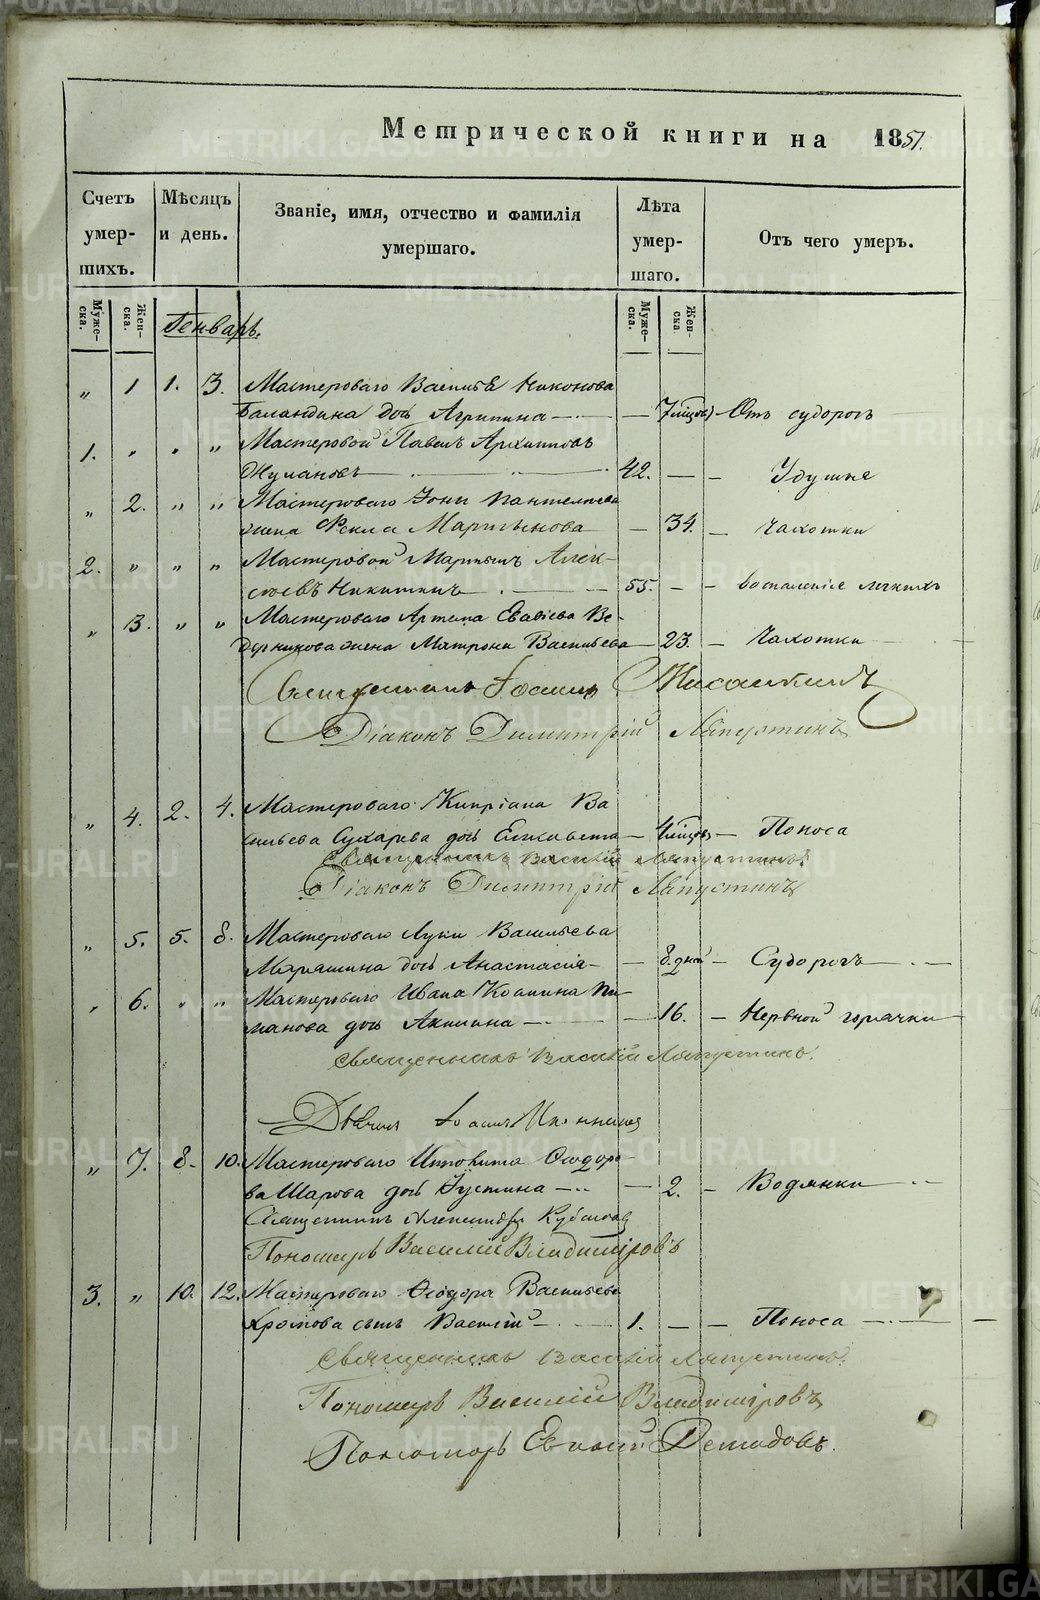 Метрической книги на 1851.
Счетъ умершихъ.
Мѣсяцъ и день.
Званіе, имя, отчество и фамилія умершаго.
Лѣта умершаго.
Отъ чего умеръ.
Мужеска.
Женска.
Мужеска.
Женска
Генварь.
„ 1 1. 3. Мастероваго Василья Никонова
Баландина дочь Агрипина — 7 мѣсцов) — Отъ судорогъ
1. „ „ „ Мастеровой Павелъ Архиповъ
42. — — Удушья
„ 2. „ „ Мастероваго Іоны Пантелеева
жена Фекла Мартынова — 34. — Чахотки
2. „ „ „ Мастеровой Мартынъ Алек-
сѣевъ Никитинъ — 55. — — воспаленія легкихъ
„ 3. „ „ Мастероваго Артема Ве-
дерникова жена Матрона Васильева — 23. — Чахотки
Священникъ Іоаннъ
Діаконъ Димитрій Ляпустинъ
„ 4. 2. 4. Мастероваго Кипріана Ва
сильева Сухарева дочь Елисавета — 4 мѣсцов — Поноса
Священникъ Василій Ляпустинъ.
Діаконъ Димитрій Ляпустинъ
„ 5. 5. 8. Мастероваго Луки Васильева
дочь Анастасія — 8. дней — Судорогъ
„ 6. „ „ Мастероваго Ивана
дочь Акилина — 16. — Нервной горячки
Священникъ Василій Ляпустинъ.
Іоаннъ
„ 7. 8. 10. Мастероваго Ѳеодоро-
ва Шарова дочь Іустина — 2. — Водянки
Священникъ Александръ
Пономарь Василій Владиміровъ
3. „ 10. 12. Мастероваго Ѳеодора Васильева
сынъ Василій — 1. — — Поноса
Священникъ Василій Ляпустинъ.
Пономарь Василій Владиміровъ
Пономарь Демидовъ.
METRIKI.GASO-URAL.RU